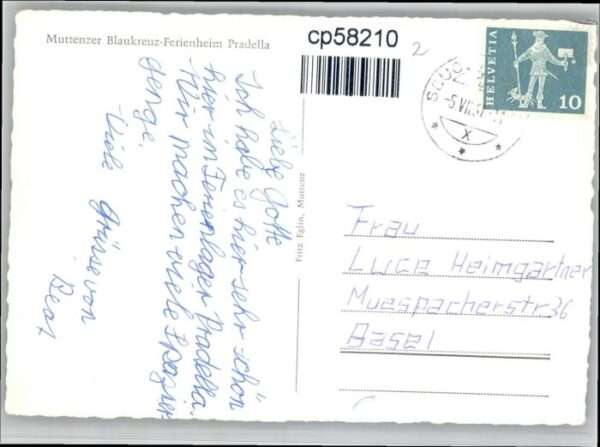 Muttenzer Blaukreuz-Ferienheim Pradella
cp58210
2
HELVETIA
10
Liebe Gotte
Ich habe es hier sehr schön
hier im Ferienlager Pradella.
Wir machen viele Spazier-
genge.
Viele Grüsse von
Beat
Fritz Eglin, Muttenz
Frau
Luce Heimgartner
Muespacherstr36
Basel